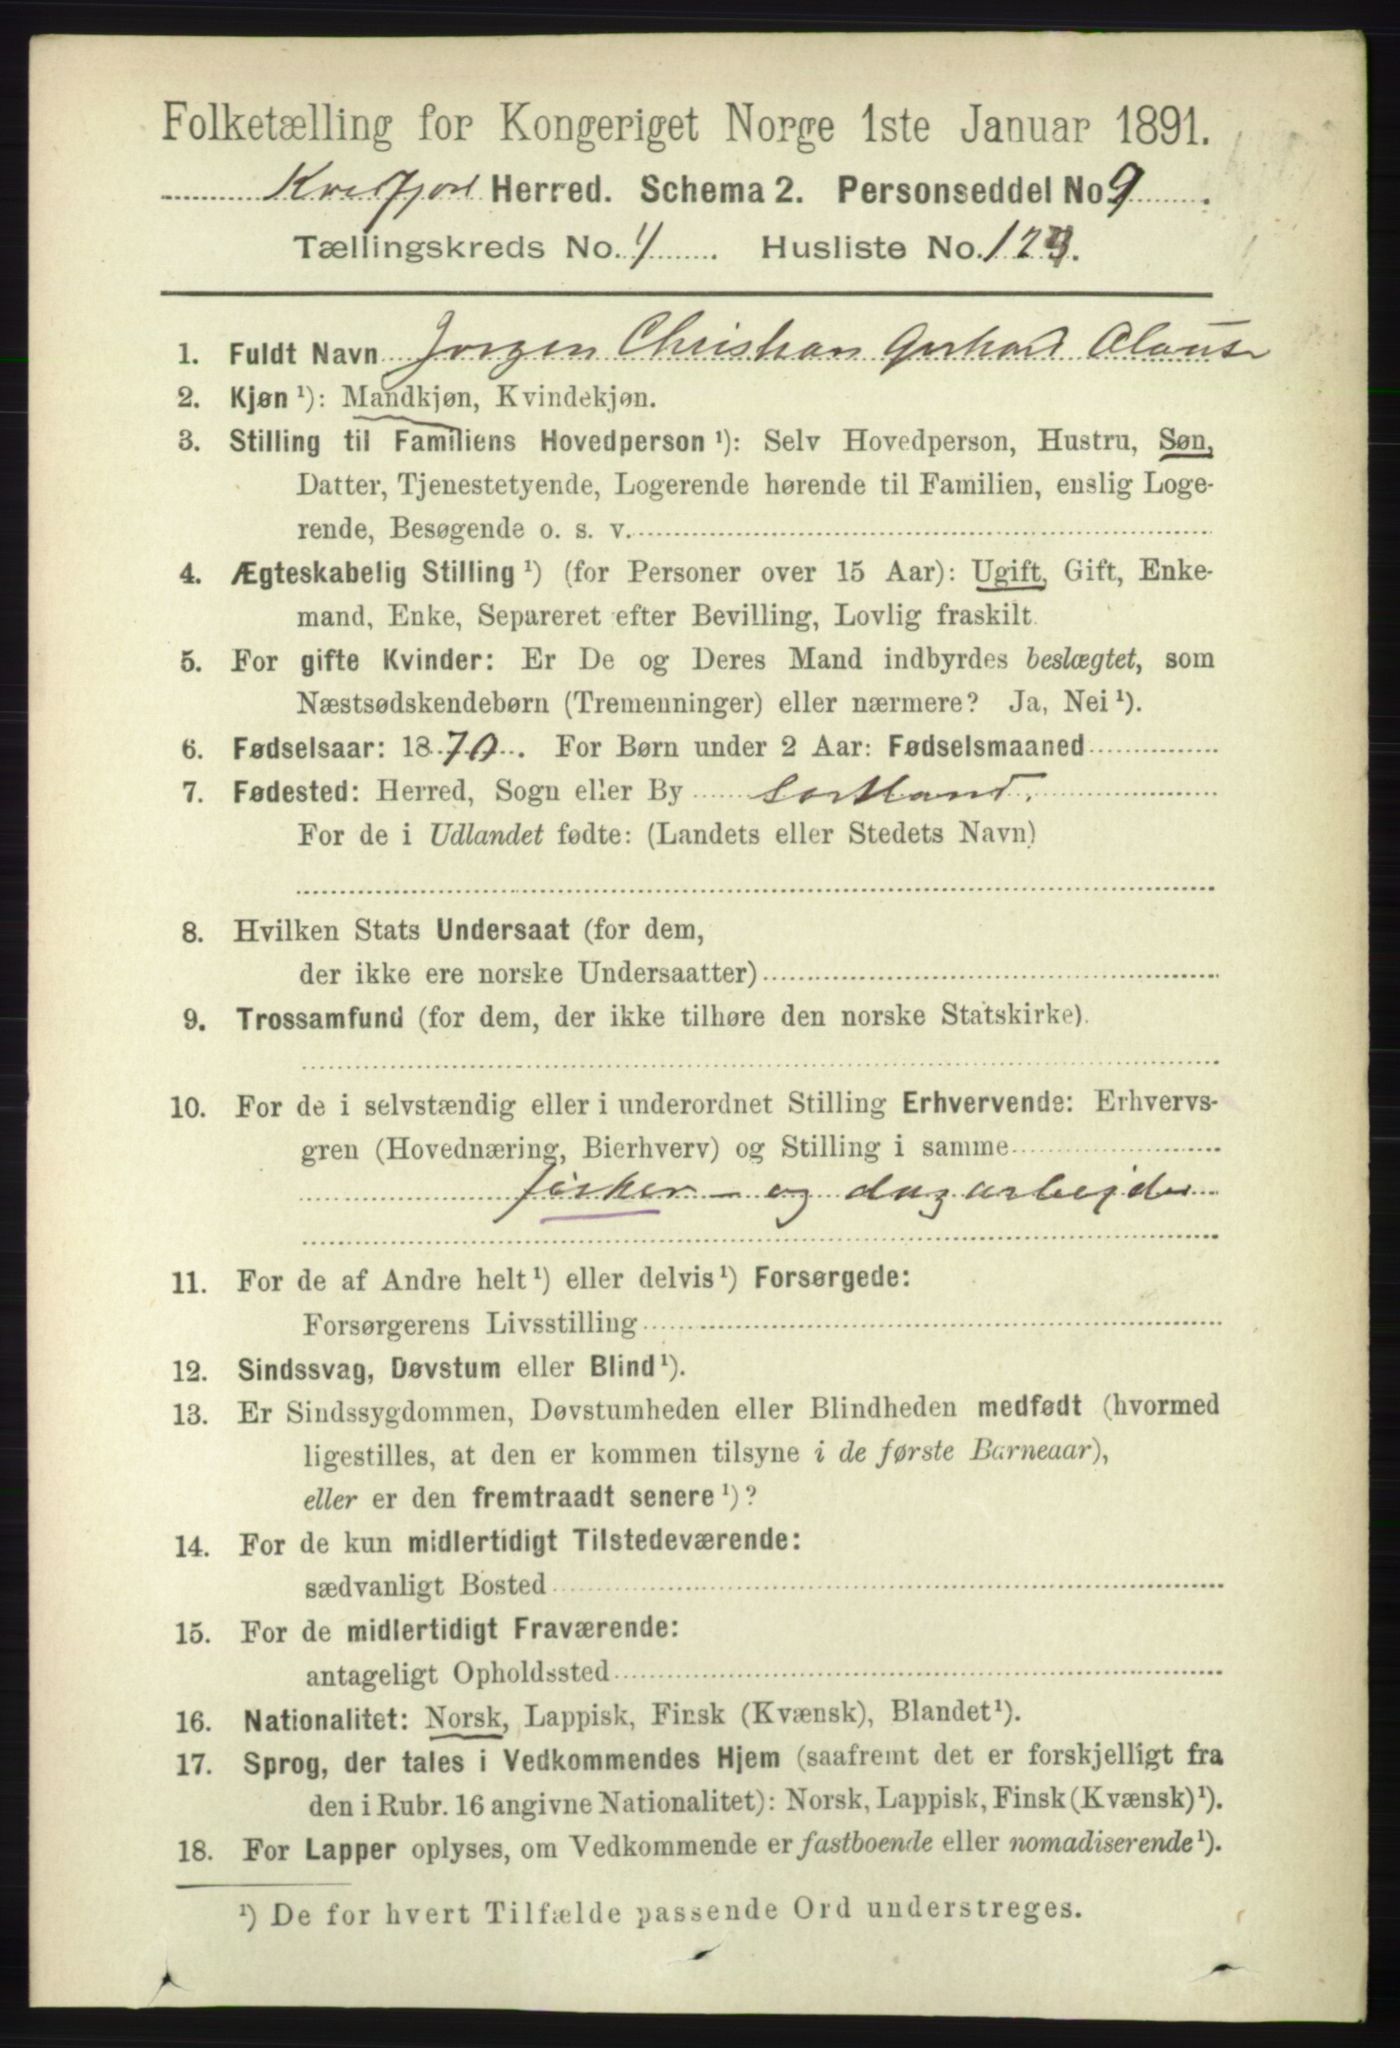 Folketælling for Kongeriget Norge 1ste Januar 1891.
Kvæfjord Herred. Schema 2. Personseddel No 9.
Tællingskreds No. 4. Husliste No. 123.
1. Fuldt Navn Jørgen Christian Gerhard Olausen
2. Kjøn ¹): Mandkjøn, Kvindekjøn.
3. Stilling til Familiens Hovedperson ¹): Selv Hovedperson, Hustru, Søn,
Datter, Tjenestetyende, Logerende hørende til Familien, enslig Loge-
rende, Besøgende o. s. v.
4. Ægteskabelig Stilling ¹) (for Personer over 15 Aar): Ugift, Gift, Enke-
mand, Enke, Separeret efter Bevilling, Lovlig fraskilt.
5. For gifte Kvinder: Er De og Deres Mand indbyrdes beslægtet, som
Næstsødskendebørn (Tremenninger) eller nærmere? Ja, Nei ¹).
6. Fødselsaar: 1870. For Børn under 2 Aar: Fødselsmaaned
7. Fødested: Herred, Sogn eller By Sortland.
For de i Udlandet fødte: (Landets eller Stedets Navn)
8. Hvilken Stats Undersaat (for dem,
der ikke ere norske Undersaatter)
9. Trossamfund (for dem, der ikke tilhøre den norske Statskirke).
10. For de i selvstændig eller i underordnet Stilling Erhvervende: Erhvervs-
gren (Hovednæring, Bierhverv) og Stilling i samme
fisker- og dagarbejder
11. For de af Andre helt ¹) eller delvis ¹) Forsørgede:
Forsørgerens Livsstilling
12. Sindssvag, Døvstum eller Blind ¹).
13. Er Sindssygdommen, Døvstumheden eller Blindheden medfødt (hvormed
ligestilles, at den er kommen tilsyne i de første Barneaar),
eller er den fremtraadt senere ¹)?
14. For de kun midlertidigt Tilstedeværende:
sædvanligt Bosted
15. For de midlertidigt Fraværende:
antageligt Opholdssted
16. Nationalitet: Norsk, Lappisk, Finsk (Kvænsk), Blandet ¹).
17. Sprog, der tales i Vedkommendes Hjem (saafremt det er forskjelligt fra
den i Rubr. 16 angivne Nationalitet): Norsk, Lappisk, Finsk (Kvænsk) ¹).
18. For Lapper oplyses, om Vedkommende er fastboende eller nomadiserende ¹).
¹) De for hvert Tilfælde passende Ord understreges.